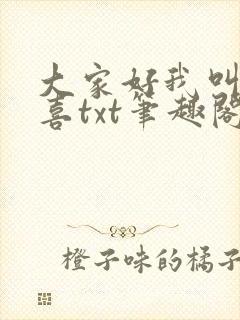 大家好我叫
喜txt笔趣阁
橙子味的橘子